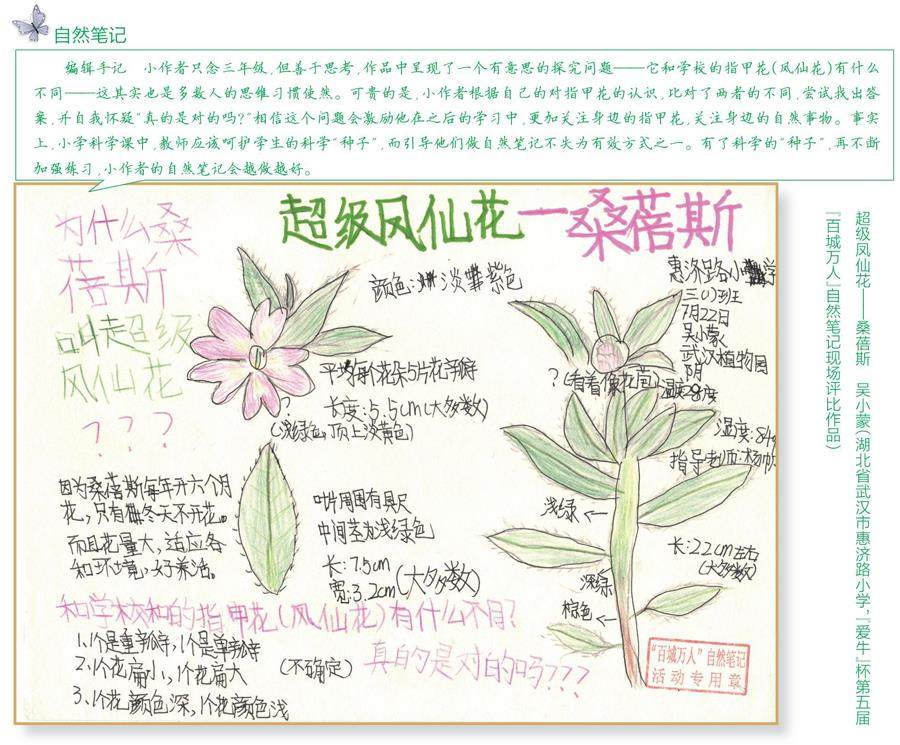 自然笔记
编辑手记 小作者只念三年级,但善于思考,作品中呈现了一个有意思的探究问题——它和学校的指甲花(凤仙花)有什么
不同——这其实也是多数人的思维习惯使然。可贵的是,小作者根据自己的对指甲花的认识,比对了两者的不同,尝试找出答
案,并自我怀疑“真的是对的吗?”相信这个问题会激励他在之后的学习中,更加关注身边的指甲花,关注身边的自然事物。事实
上,小学科学课中,教师应该呵护学生的科学“种子”,而引导他们做自然笔记不失为有效方式之一。有了科学的“种子”,再不断
加强练习,小作者的自然笔记会越做越好。
超级凤仙花一桑蓓斯
为什么桑
蓓斯
叫超级
凤仙花
???
颜色:淡紫色
平均每个花朵5片花瓣
?
长度:5.5cm(大多数)
(浅绿色,顶上淡黄色)
因为桑蓓斯每年开六个月
花,只有冬天不开花。
而且花量大,适应各
和环境,好养活。
叶片周围有具尺
中间茎为浅绿色
长:7.5cm
宽:3.2cm(大多数)
惠济路小学
三(1)班
7月22日
吴小蒙
武汉植物园
阴
温度28度
?(看着像花苞)
湿度:84%
指导老师:杨帆
浅绿
深绿
棕色
长:22cm左右
(大多数)
和学校和的指甲花(凤仙花)有什么不同?
1、1个是重瓣,1个是单瓣
2、1个花扁小,1个花扁大
3、1个花颜色深,1个花颜色浅
(不确定)
真的是对的吗???
“百城万人”自然笔记
活动专用章
超级凤仙花——桑蓓斯 吴小蒙(湖北省武汉市惠济路小学,『爱牛』杯第五届
『百城万人』自然笔记现场评比作品)